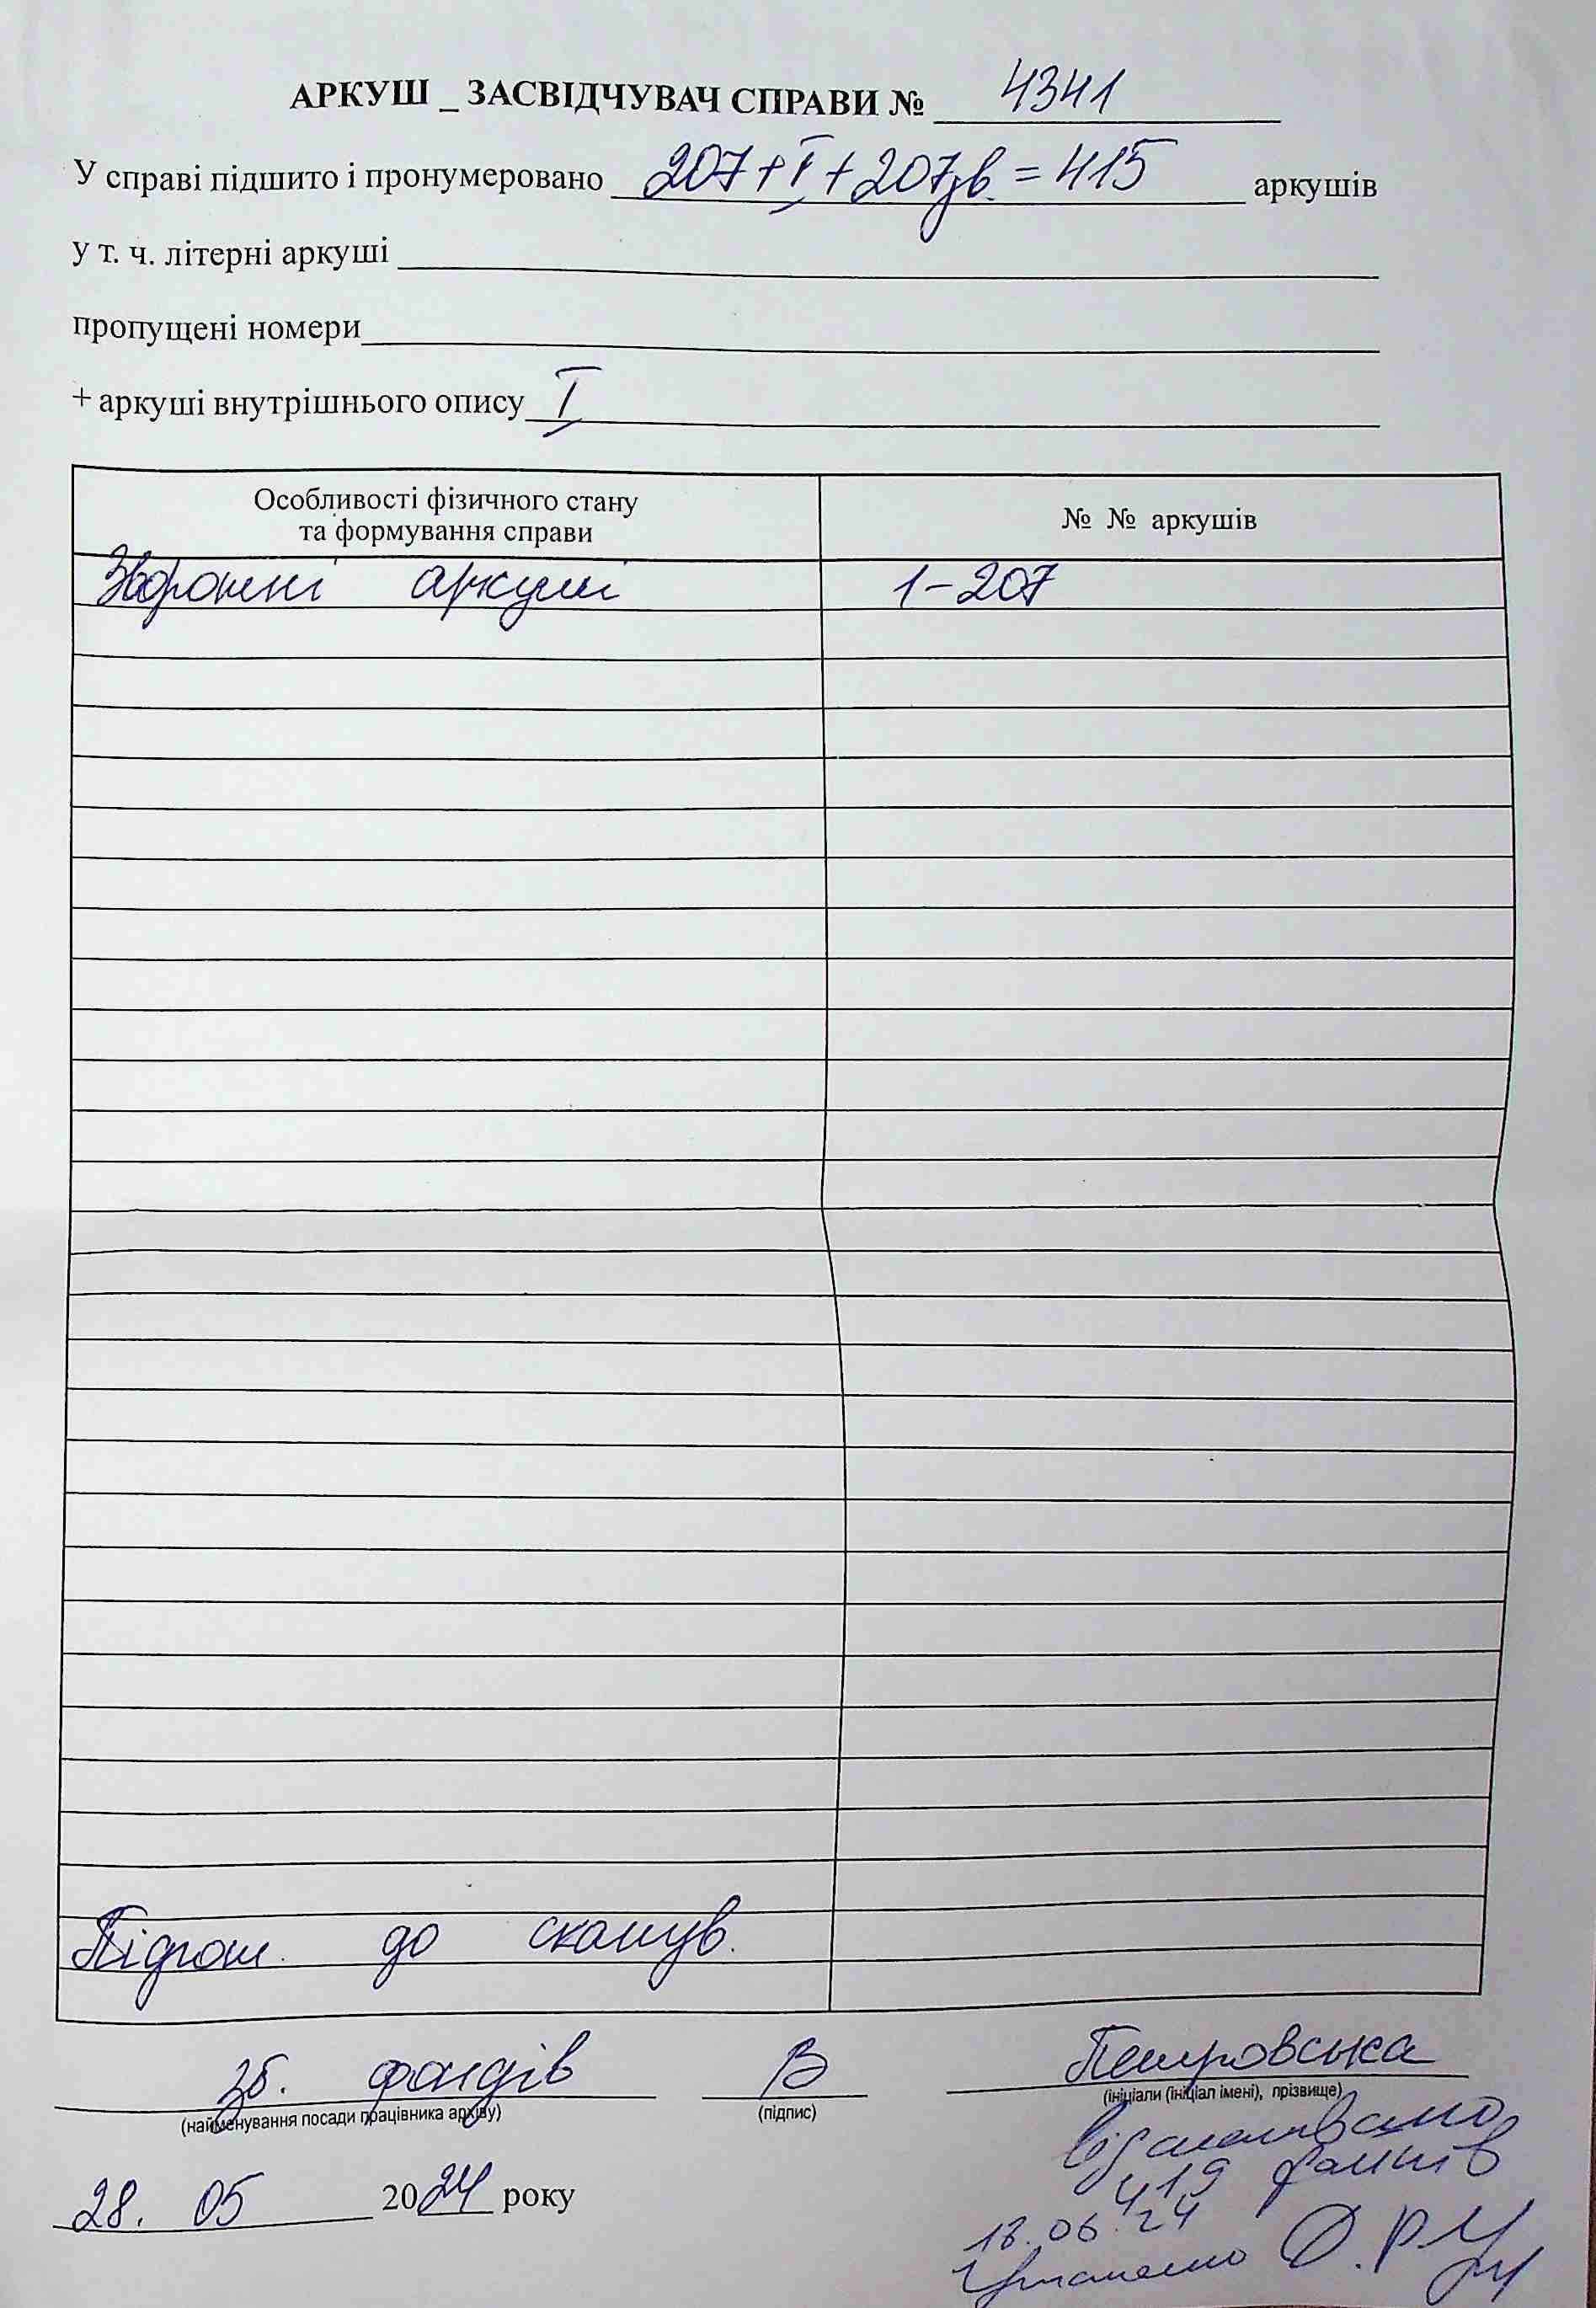 АРКУШ _ ЗАСВІДЧУВАЧ СПРАВИ № 4341
У справі підшито і пронумеровано 207+I+207зв. = 415 аркушів
у т. ч. літерні аркуші
пропущені номери
+ аркуші внутрішнього опису I
Особливості фізичного стану
та формування справи
№ № аркушів
Зворотні аркуші 1-207
Підгот. до сканув.
зб. фондів В Петровська
(найменування посади працівника архіву) (підпис) (ініціали (ініціал імені), прізвище)
відскановано
419 файлів
28. 05 2024 року
18.06.24